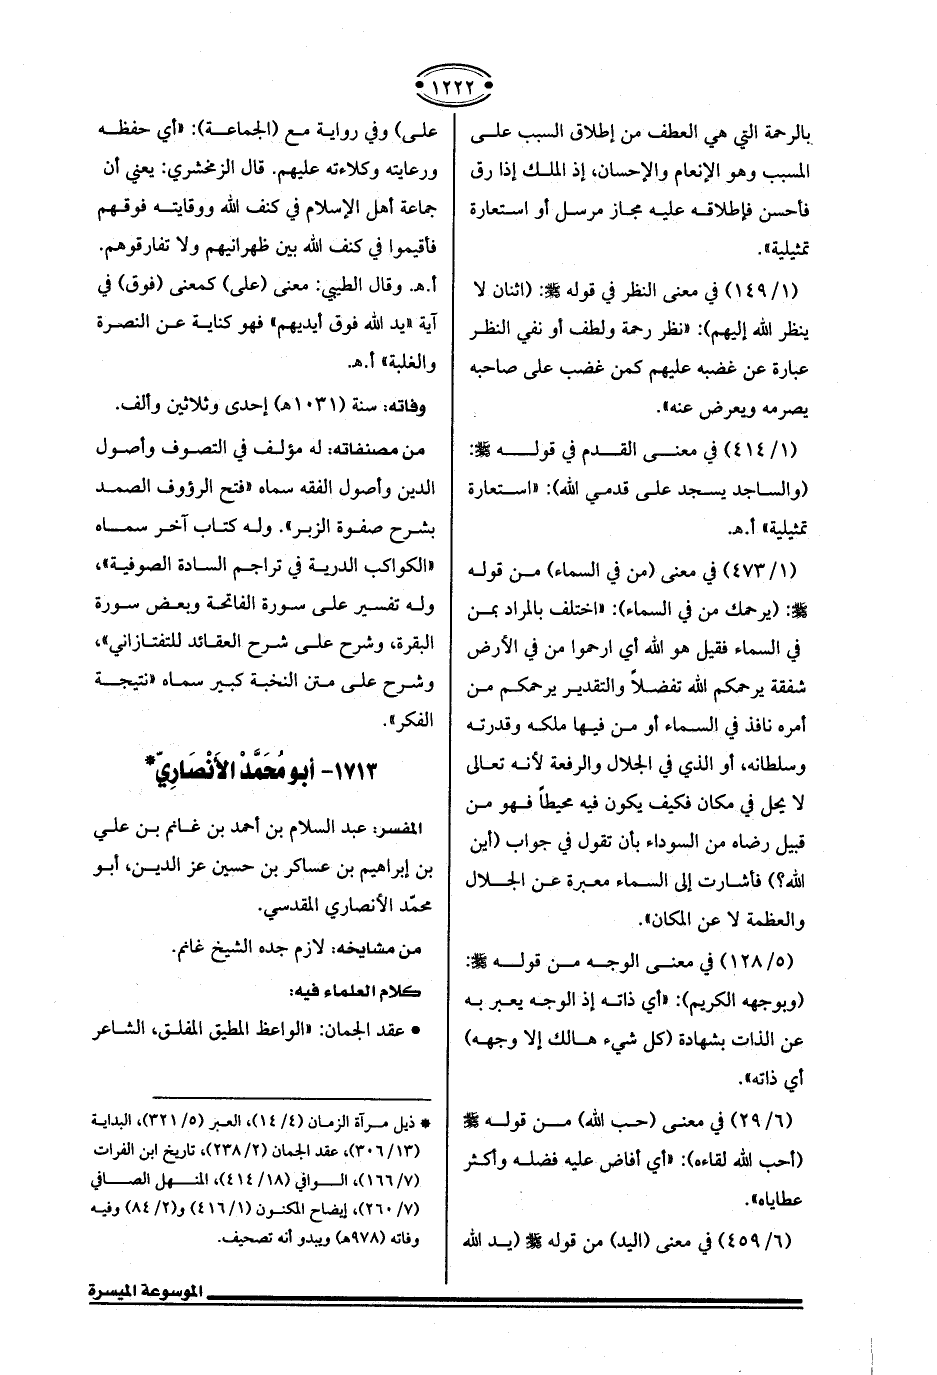 ١٢٢٢
بالرحمة التي هي العطف من إطلاق السبب على
المسبب وهو الإنعام والإحسان، إذ الملك إذا رق
فأحسن فإطلاقه عليه مجاز مرسل أو استعارة
تمثيلية».
(١/١٤٩) في معنى النظر في قوله ﷺ: (اثنان لا
ينظر الله إليهم): «نظر رحمة ولطف أو نفي النظر
عبارة عن غضبه عليهم كمن غضب على صاحبه
يصرمه ويعرض عنه».
(١/٤١٤) في معنى القدم في قوله ﷺ:
(والساجد يسجد على قدمي الله): «استعارة
تمثيلية» أ.هـ.
(١/٤٧٣) في معنى (من في السماء) من قوله
ﷺ: (يرحمك من في السماء): «اختلف بالمراد بمن
في السماء فقيل هو الله أي ارحموا من في الأرض
شفقة يرحمكم الله تفضلاً والتقدير يرحمكم من
أمره نافذ في السماء أو من فيها ملكه وقدرته
وسلطانه، أو الذي في الجلال والرفعة لأنه تعالى
لا يحل في مكان فكيف يكون فيه محيطاً فهو من
قبيل رضاه من السوداء بأن تقول في جواب (أين
الله؟) فأشارت إلى السماء معبرة عن الجلال
والعظمة لا عن المكان».
(٥/١٢٨) في معنى الوجه من قوله ﷺ:
(وبوجهه الكريم): «أي ذاته إذ الوجه يعبر به
عن الذات بشهادة (كل شيء هالك إلا وجهه)
أي ذاته».
(٦/٢٩) في معنى (حب الله) من قوله ﷺ
(أحب الله لقاءه): «أي أفاض عليه فضله وأكثر
عطاياه».
(٦/٤٥٩) في معنى (اليد) من قوله ﷺ (يد الله
على) وفي رواية مع (الجماعة): «أي حفظه
ورعايته وكلاءته عليهم. قال الزمخشري: يعني أن
جماعة أهل الإسلام في كنف الله ووقايته فوقهم
فأقيموا في كنف الله بين ظهرانيهم ولا تفارقوهم.
أ.هـ. وقال الطيبي: معنى (على) كمعنى (فوق) في
آية «يد الله فوق أيديهم» فهو كناية عن النصرة
والغلبة» أ.هـ.
وفاته: سنة (١٠٣١هـ) إحدى وثلاثين وألف.
من مصنفاته: له مؤلف في التصوف وأصول
الدين وأصول الفقه سماه «فتح الرؤوف الصمد
بشرح صفوة الزبر». وله كتاب آخر سماه
«الكواكب الدرية في تراجم السادة الصوفية»،
وله تفسير على سورة الفاتحة وبعض سورة
البقرة، وشرح على شرح العقائد للتفتازاني»،
وشرح على متن النخبة كبير سماه «نتيجة
الفكر».
١٧١٣- أبو مُحَمَّدْ الأَنْصَارِيّ*
المفسر: عبد السلام بن أحمد بن غانم بن علي
بن إبراهيم بن عساكر بن حسين عز الدين، أبو
محمّد الأنصاري المقدسي.
من مشايخه: لازم جده الشيخ غانم.
كلام العلماء فيه:
• عقد الجمان: «الواعظ المطيق المفلق، الشاعر
* ذيل مرآة الزمان (٤/١٤)، العبر (٥/٣٢١)، البداية
(١٣/٣٠٦)، عقد الجمان (٢/٢٣٨)، تاريخ ابن الفرات
(٧/١٦٦)، الوافي (١٨/٤١٤)، المنهل الصافي
(٧/٢٦٠)، إيضاح المكنون (١/٤١٦) و(٢/٨٤) وفيه
وفاته (٩٧٨هـ) ويبدو أنه تصحيف.
الموسوعة الميسرة